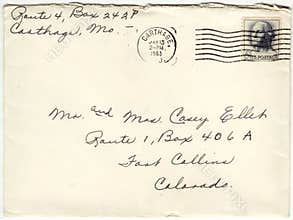 Route 4, Box 242P
Carthage, Mo.
CARTHAGE,
2-PM
1963
U.S. POSTAGE
Mr. and Mrs. Casey Ellet
Route 1, Box 406 A
Fort Collins
Colorado.